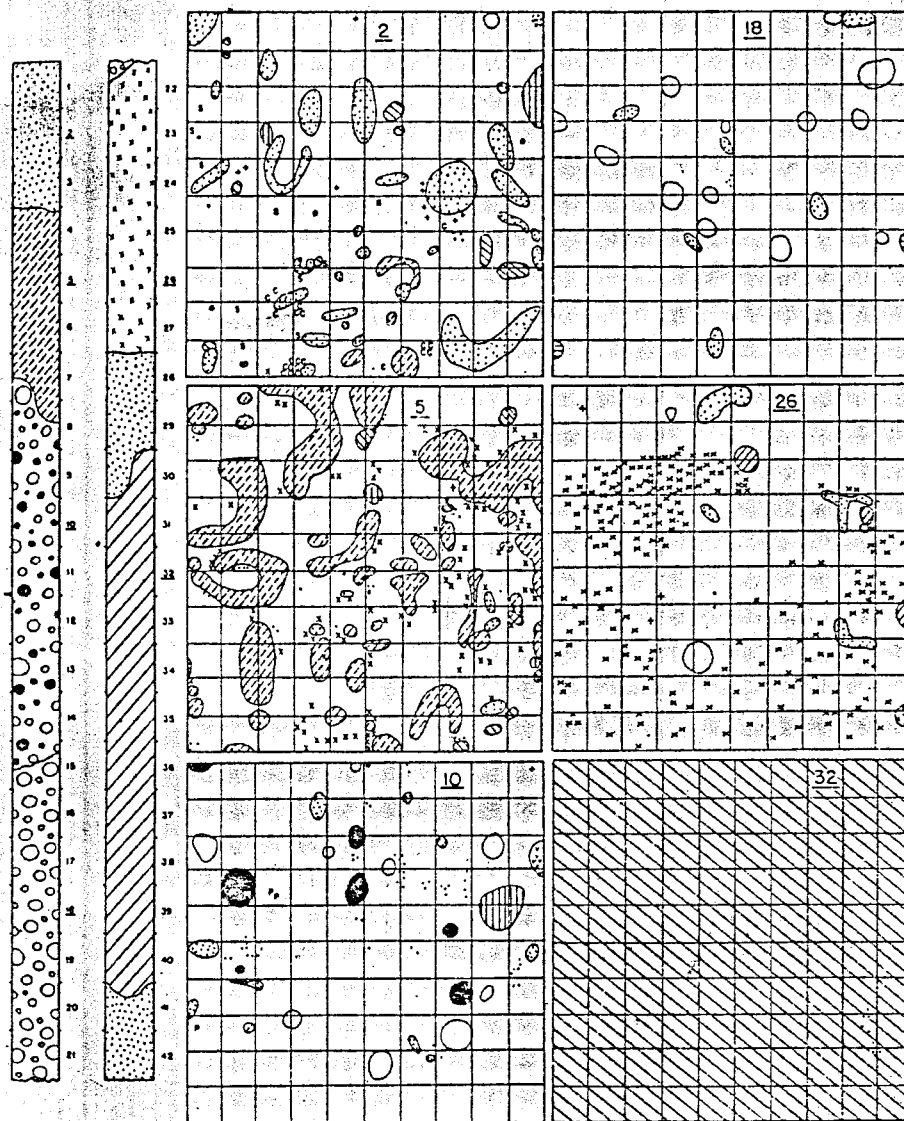 1
2
3
4
5
6
7
8
9
10
11
12
13
14
15
16
17
18
19
20
21
22
23
24
25
26
27
28
29
30
31
32
33
34
35
36
37
38
39
40
41
42
2
18
5
26
10
32